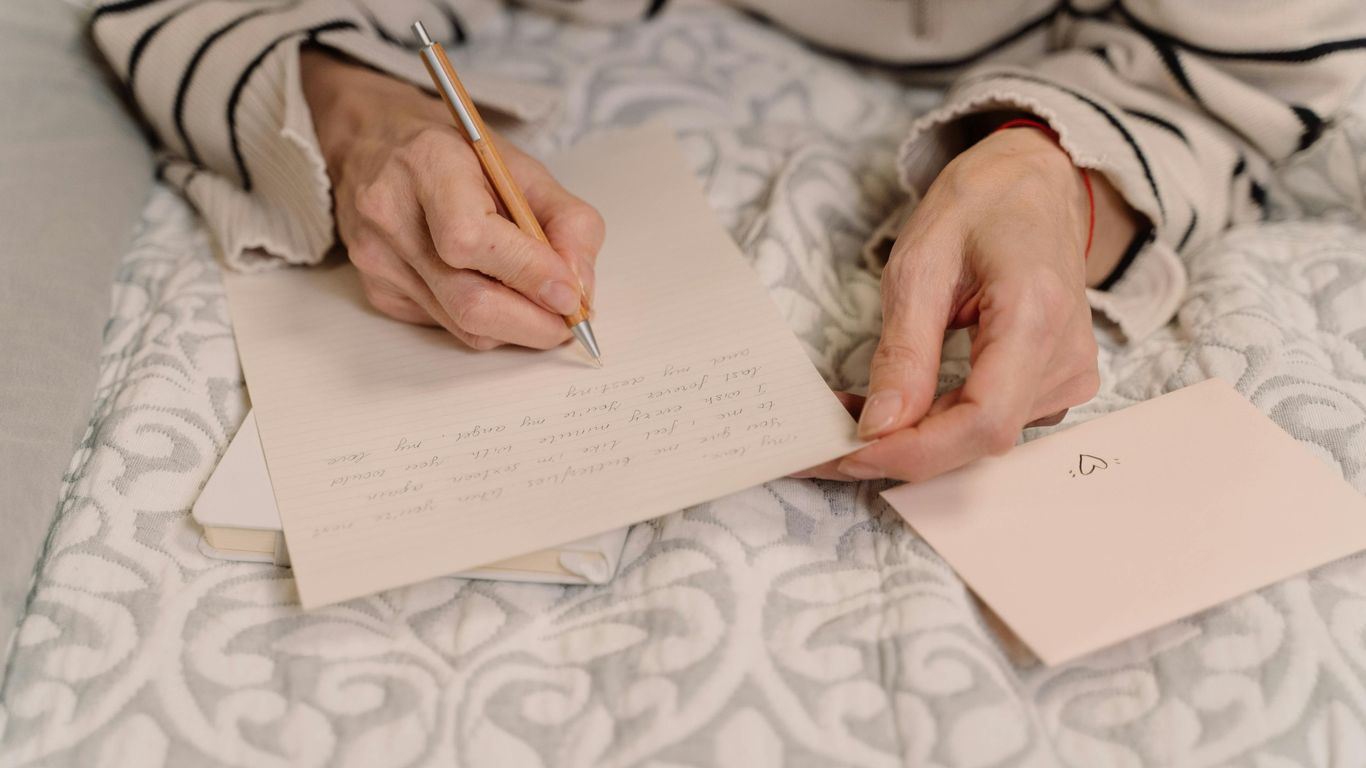 My love,
You give me butterflies when you're next
to me i feel like i'm sexteen again.
I wish every minute with you would
last forever you're my angel, my love
and my desting